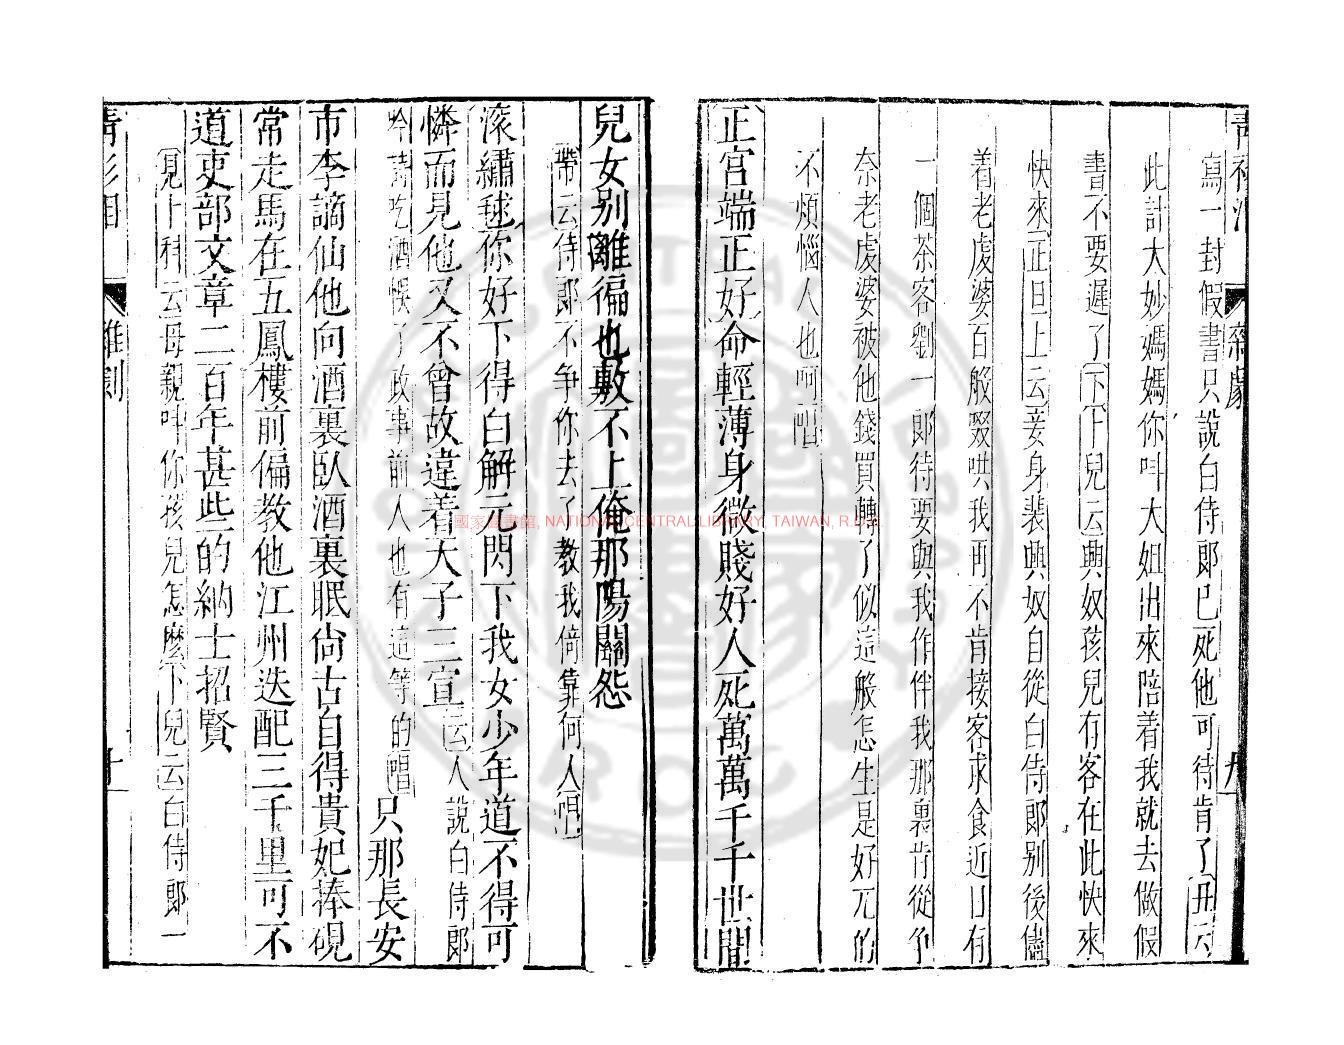 青衫淚 雜劇 九
寫一封假書只說白侍郎已死他可待肯了丑云
此計大妙媽媽你呌大姐出來陪着我就去做假
書不要遲了下卜兒云興奴孩兒有客在此快來
快來正旦上云妾身裴興奴自從白侍郎別後儘
着老虔婆百般啜哄我再不肯接客求食近日有
一個茶客劉一郎待要與我作伴我那裏肯從爭
奈老虔婆被他錢買轉了似這般怎生是好兀的
不煩惱人也呵唱
正宮端正好命輕薄身微賤好人死萬萬千千世間
兒女別離徧也敷不上俺那陽關怨
帶云侍郎不爭你去了教我倚靠何人唱
滚繡毬你好下得白解元閃下我女少年道不得可
憐而見他又不曾故違着天子三宣云人說白侍郎
吟詩吃酒悞了政事前人也有這等的唱只那長安
市李謫仙他向酒裏臥酒裏眠尙古自得貴妃捧硯
常走馬在五鳳樓前偏教他江州迭配三千里可不
道吏部文章二百年甚些的納士招賢
見卜科云母親呌你孩兒怎麽卜兒云白侍郎一
青衫泪 雜劇 十
國家圖書館, NATIONAL CENTRAL LIBRARY, TAIWAN, R.O.C.